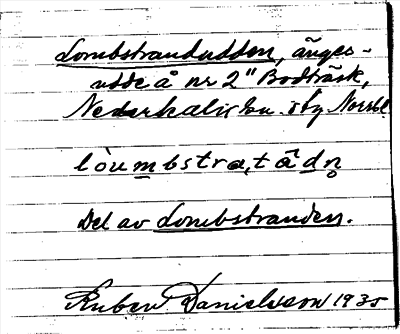 Lombstrandudden, änges-
udde å nr 2" Bodträsk,
Nederkalix sn. o by Norrb.l
lòumbstra,tâdn̥
Del av Lombstranden.
Ruben Danielsson 1935